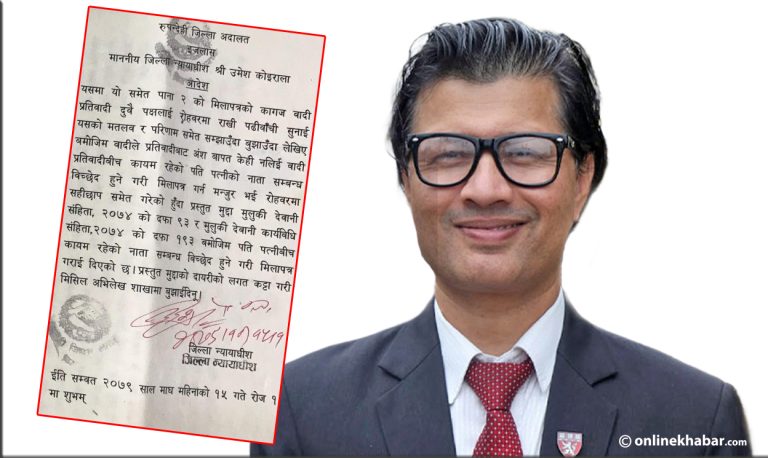 रुपन्देही जिल्ला अदालत
इजलास
माननीय जिल्ला न्यायाधीश श्री उमेश कोइराला
आदेश
यसमा यो समेत पाना २ को मिलापत्रको कागज वादी
प्रतिवादी दुवै पक्षलाई रोहवरमा राखी पढीवाँची सुनाई
यसको मतलव र परिणाम समेत सम्झाउँदा बुझाउँदा लेखिए
बमोजिम वादीले प्रतिवादीबाट अंश बापत केही नलिई वादी
प्रतिवादीबीच कायम रहेको पति पत्नीको नाता सम्बन्ध
बिच्छेद हुने गरी मिलापत्र गर्न मन्जुर भई रोहवरमा
सहीछाप समेत गरेको हुँदा प्रस्तुत मुद्दा मुलुकी देवानी
संहिता, २०७४ को दफा ९३ र मुलुकी देवानी कार्यविधि
संहिता,२०७४ को दफा १९३ बमोजिम पति पत्नीबीच
कायम रहेको नाता सम्बन्ध बिच्छेद हुने गरी मिलापत्र
गराई दिएको छ। प्रस्तुत मुद्दाको दायरीको लगत कट्टा गरी
मिसिल अभिलेख शाखामा बुझाईदिनू।
जिल्ला न्यायाधीश
जिल्ला न्यायाधीश
ईति सम्वत २०७९ साल माघ महिनाको १५ गते रोज १
मा शुभम्
© onlinekhabar.com